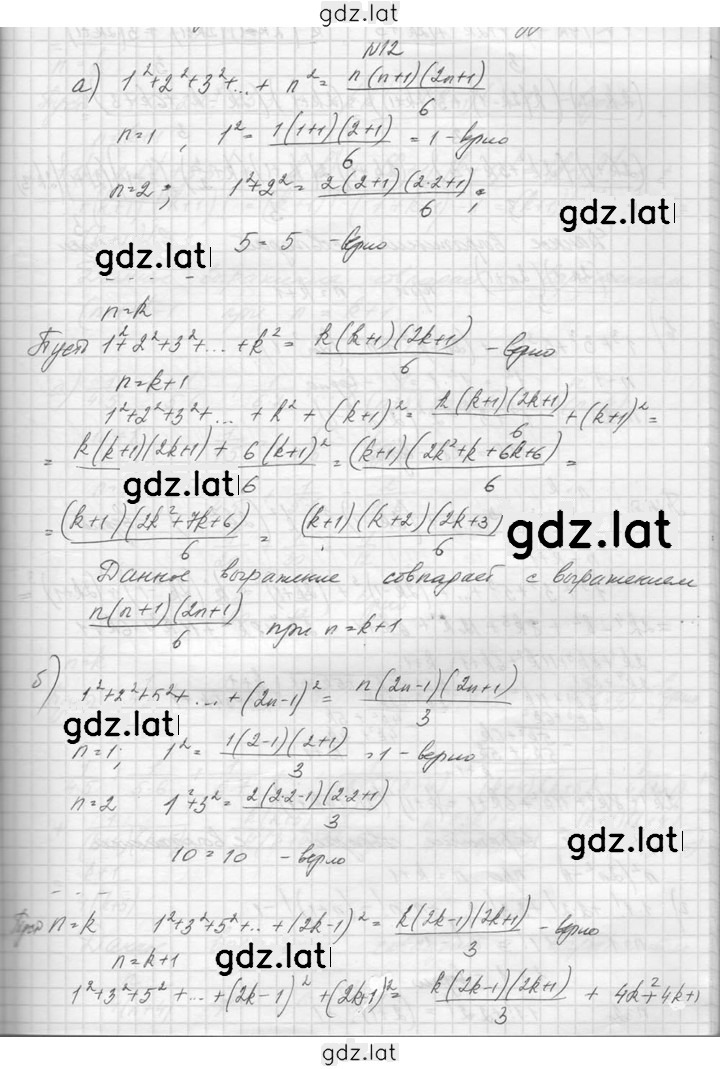 gdz.lat
N12
а) 1²+2²+3²+...+ n² = n(n+1)(2n+1)/6
n=1, 1² = 1(1+1)(2+1)/6 = 1 - верно
n=2; 1²+2² = 2(2+1)(2·2+1)/6;
gdz.lat
5 = 5 - верно
gdz.lat
n=k
Пусть 1²+2²+3²+...+k² = k(k+1)(2k+1)/6 - верно
n=k+1
1²+2²+3²+...+k²+(k+1)² = k(k+1)(2k+1)/6 + (k+1)² =
= k(k+1)(2k+1) + 6(k+1)²/6 = (k+1)(2k²+k+6k+6)/6 =
gdz.lat
= (k+1)(2k²+7k+6)/6 = (k+1)(k+2)(2k+3)/6
gdz.lat
Данное выражение совпадает с выражением
n(n+1)(2n+1)/6 при n=k+1
б) 1²+2²+5²+...+(2n-1)² = n(2n-1)(2n+1)/3
gdz.lat
n=1; 1² = 1(2-1)(2+1)/3 = 1 - верно
n=2 1²+3² = 2(2·2-1)(2·2+1)/3
gdz.lat
10 = 10 - верно
Пусть n=k 1²+3²+5²+..+(2k-1)² = k(2k-1)(2k+1)/3 - верно
n=k+1
gdz.lat
1²+3²+5²+...+(2k-1)²+(2k+1)² = k(2k-1)(2k+1)/3 + 4k²+4k+1
gdz.lat